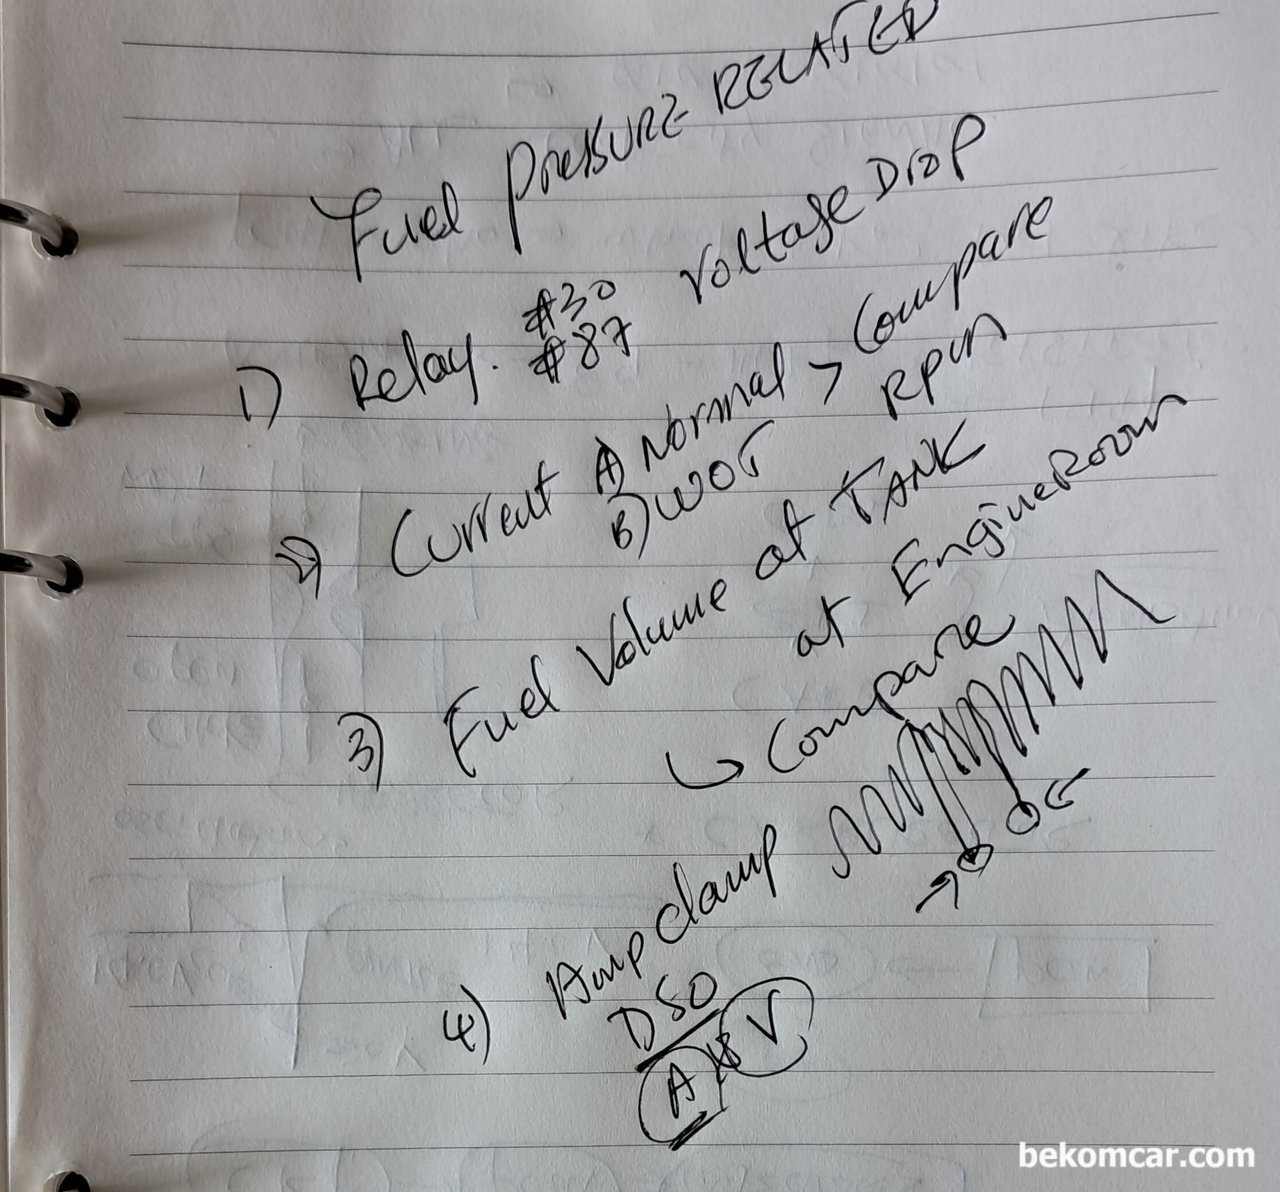 Fuel PRESSURE RELATED
1) Relay. #30 Voltage Drop
#87
2) Current A) Normal > Compare
B) WOT RPM
3) Fuel Volume at TANK
at Engine Room
↳ Compare
4) Amp clamp
DSO
A V
bekomcar.com